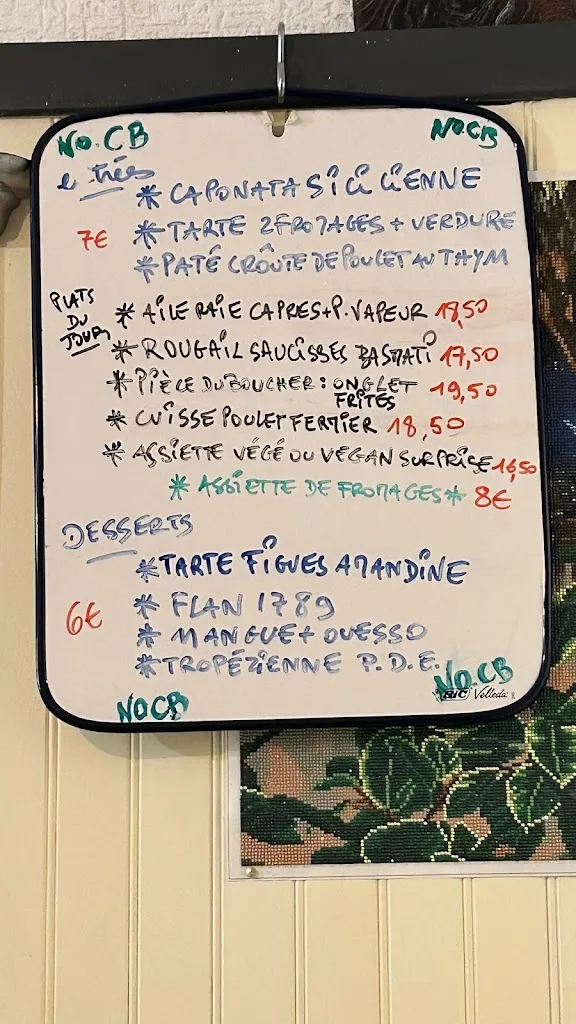 NO.CB NO CB
e trées
* CAPONATA SiCiLiENNE
7€ * TARTE 2 FROMAGES + VERDURE
* PATÉ CROÛTE DE POULET AU THYM
PLATS
DU
JOUR
* AiLE RAIE CAPRES + P. VAPEUR 18,50
* ROUGAiL SAUCiSSES BASMATi 17,50
* PiÈCE DU BOUCHER : ONGLET 19,50
FRITES
* CUiSSE POULET FERMiER 18,50
* ASSiETTE VÉGÉ OU VEGAN SURPRiSE 16,50
* ASSiETTE DE FROMAGES * 8€
DESSERTS
* TARTE FiGUES AMANDiNE
6€ * FLAN 1789
* MANGUE + OUESSO
* TROPÉZiENNE P.D.E.
NO CB NO.CB
BIC Velleda